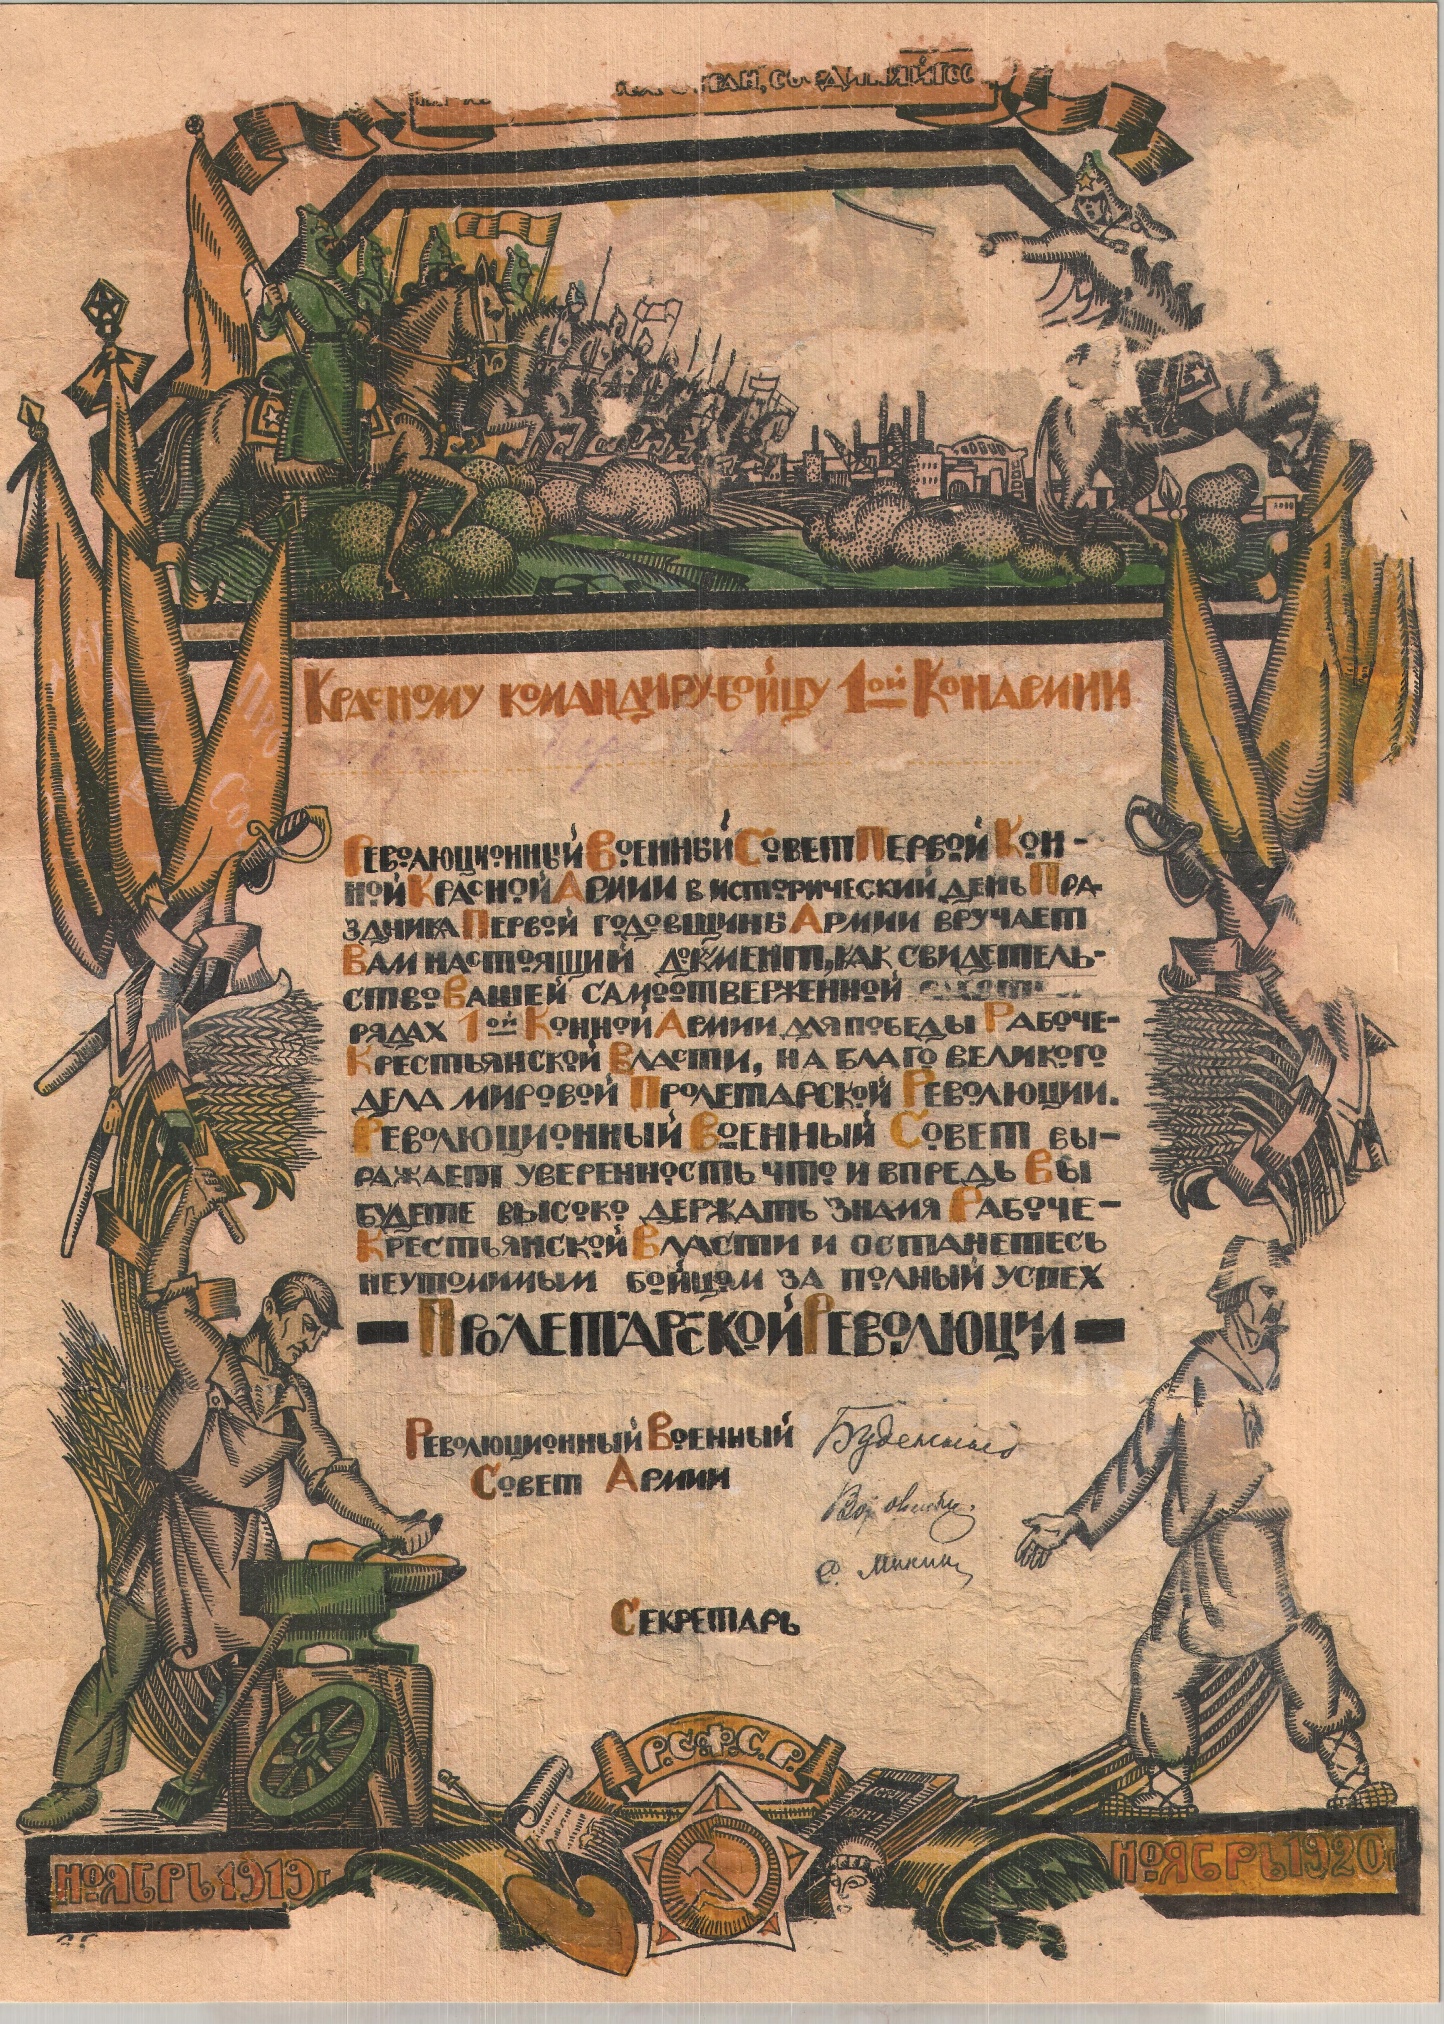 Красному командиру-бойцу 1ой Конармии
Революционный Военный Совет Первой Кон-
ной Красной Армии в исторический день Пра-
здника Первой годовщины Армии вручает
Вам настоящий документ, как свидетель-
ство Вашей самоотверженной
рядах 1ой Конной Армии для победы Рабоче-
Крестьянской Власти, на благо великого
дела мировой Пролетарской Революции.
Революционный Военный Совет вы-
ражает уверенность что и впредь Вы
будете высоко держать знамя Рабоче-
Крестьянской Власти и останетесь
неутомимым бойцом за полный успех
Пролетарской Революции
Революционный Военный
Совет Армии
Буденный
Секретарь
Р.С.Ф.С.Р.
Ноябрь 1919 г.
Ноябрь 1920 г